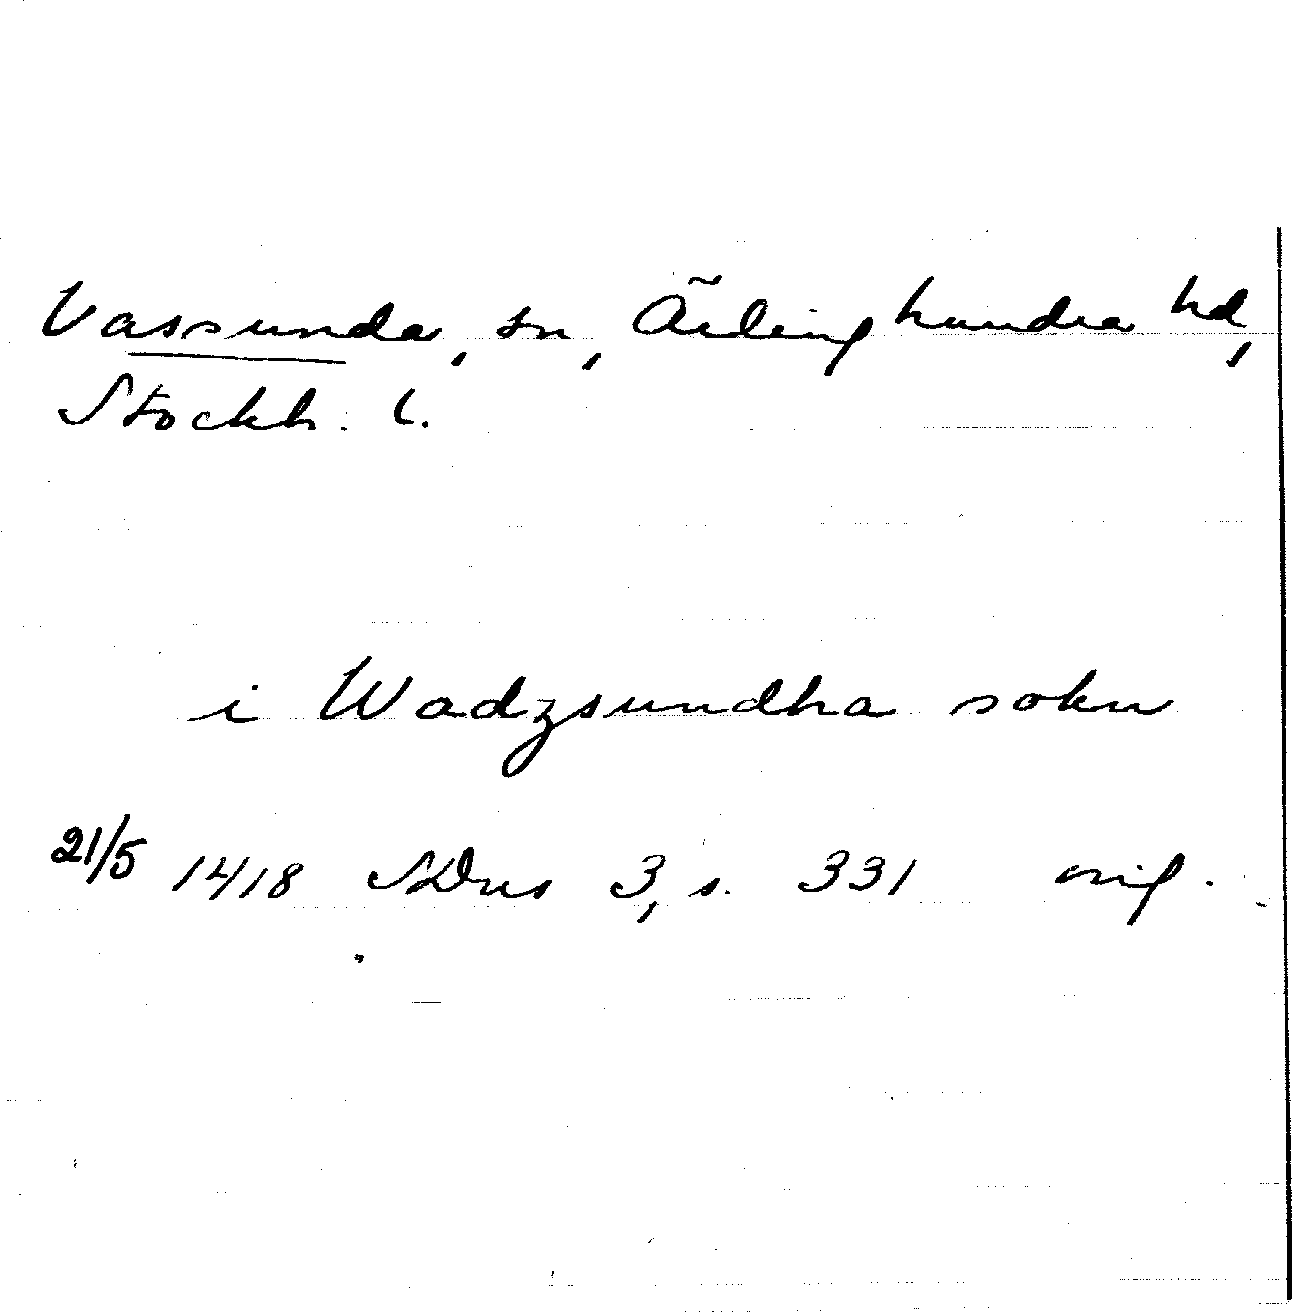 Vassunda, sn, Ärlinghundra hd,
Stockh. l.
i Wadzsundha sokn
21/5 1418 SDns 3, s. 331 orig.